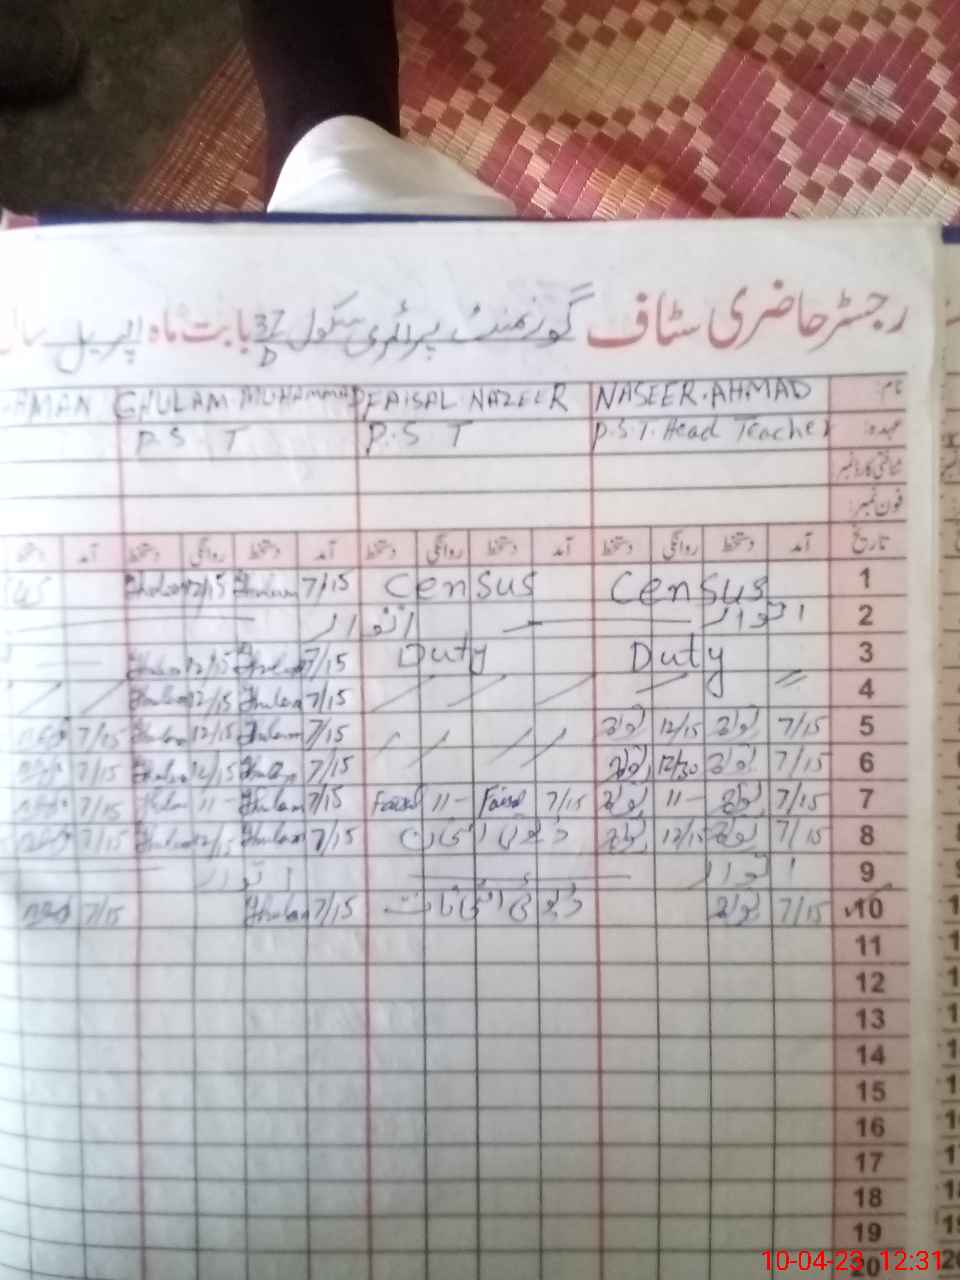 رجسٹر حاضری سٹاف گورنمنٹ پرائمری سکول 37/D بابت ماہ اپریل سال
نام NASEER AHMAD FAISAL NAZEER GHULAM MUHAMMAD
عہدہ P.S.T. Head Teacher P.S T P.S T
شناختی کارڈ نمبر
فون نمبر:
تاریخ آمد دستخط روانگی دستخط آمد دستخط روانگی دستخط آمد دستخط روانگی دستخط آمد
1 Census Census 7/15 Ghulam 12/15 Ghulam
2 اتوار اتوار
3 Duty Duty 7/15 Ghulam 12/15 Ghulam
4 〃 7/15 Ghulam 12/15 Ghulam
5 7/15 12/15 7/15 Ghulam 12/15 Ghulam 7/15
6 7/15 12/30 7/15 Ghulam 12/15 Ghulam 7/15
7 7/15 11- 7/15 Faisal 11- Faisal 7/15 Ghulam 11- 7/15
8 7/15 12/15 7/15 Ghulam 12/15 Ghulam 7/15
9 اتوار اتوار
10 7/15 7/15 Ghulam 7/15
11
12
13
14
15
16
17
18
19
20
10-04-23 12:31